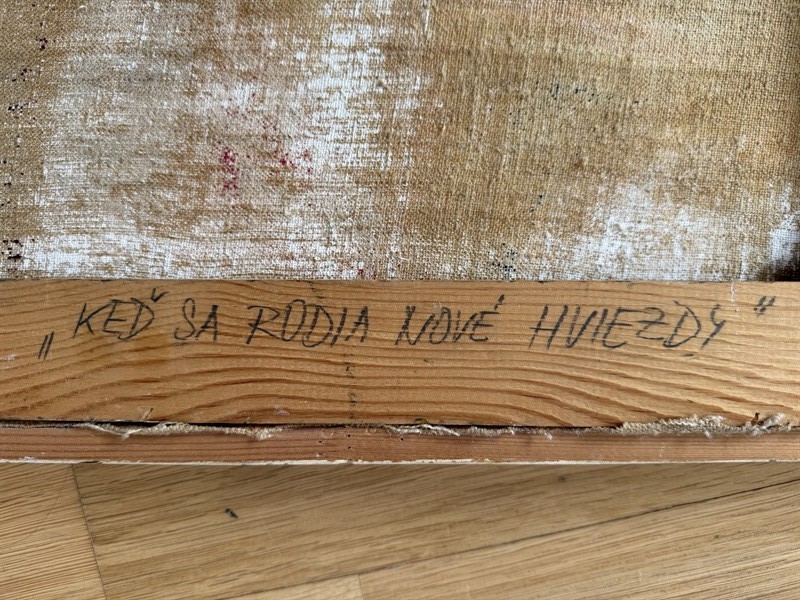 „KEĎ SA RODIA NOVÉ HVIEZDY"